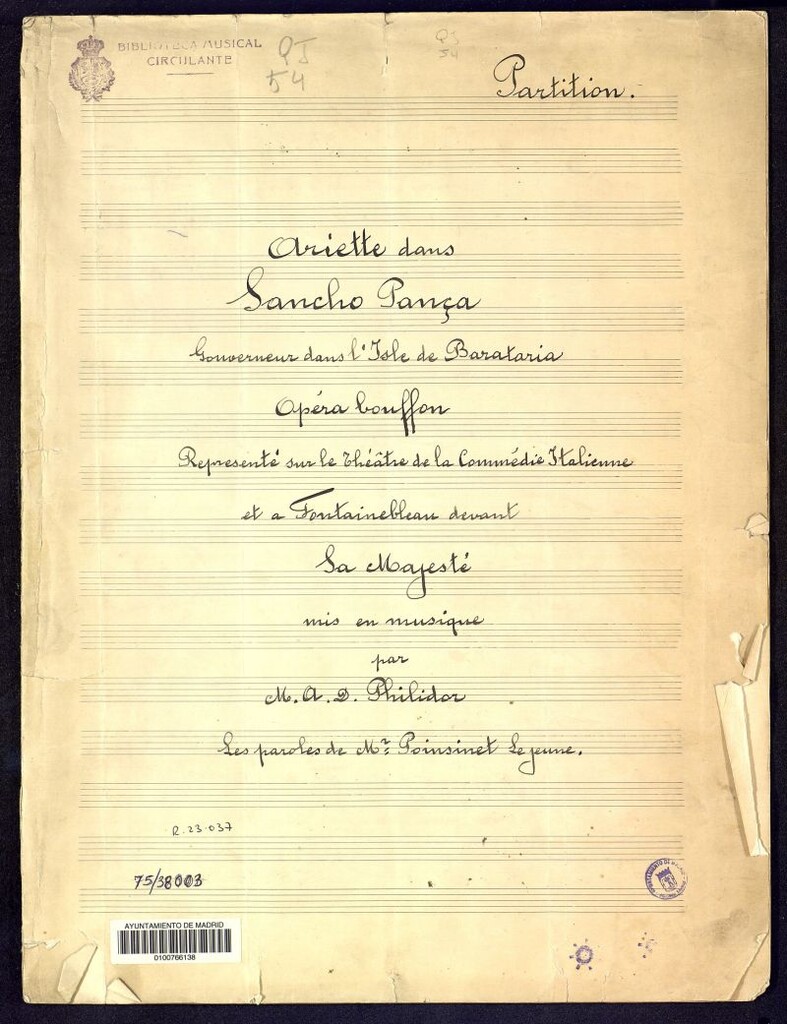 BIBLIOTECA MUSICAL
CIRCULANTE
QJ
54
QJ
54
Partition.
Ariette dans
Sancho Pança
Gouverneur dans l'Isle de Barataria
Opéra bouffon
Representé sur le Théâtre de la Commédie Italienne
et a Fontainebleau devant
Sa Majesté
mis en musique
par
M. A. D. Philidor
Les paroles de Mr. Poinsinet Le jeune.
R. 23.037
75/38003
AYUNTAMIENTO DE MADRID
0100766138